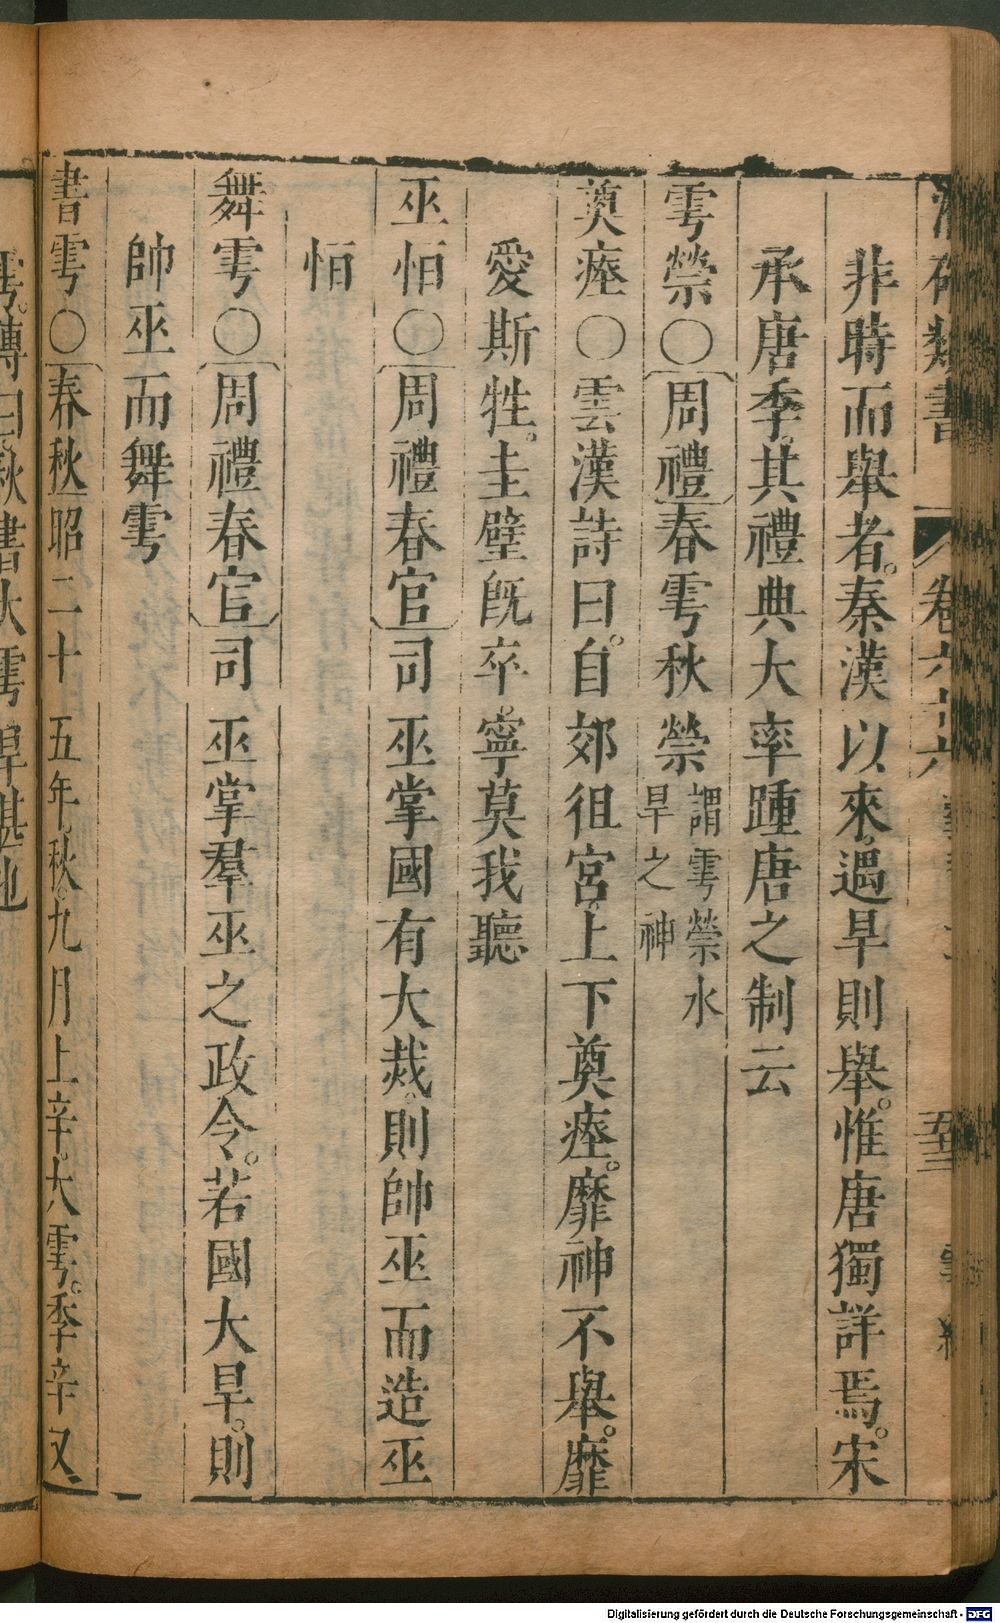 類書
卷六十六
非時而舉者。秦漢以來。遇旱則舉。惟唐獨詳焉。宋
承唐季。其禮典大率踵唐之制云
雩禜〇周禮春雩秋禜謂雩禜水旱之神
奠瘞〇雲漢詩曰。自郊徂宮。上下奠瘞。靡神不舉。靡
愛斯牲。圭璧旣卒。寧莫我聽
巫恒〇周禮春官司巫掌國有大烖。則帥巫而造巫
恒
舞雩〇周禮春官司巫掌羣巫之政令。若國大旱。則
帥巫而舞雩
書雩〇春秋昭二十五年。秋。九月上辛。大雩。季辛又
雩。傳曰秋書大雩旱甚也
Digitalisierung gefördert durch die Deutsche Forschungsgemeinschaft - DFG